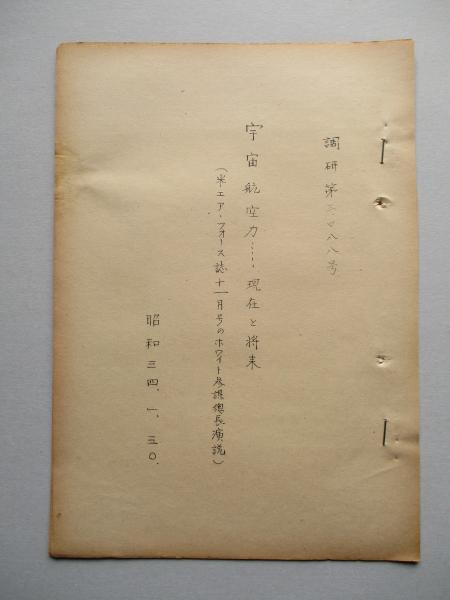 調研第二四八八号
宇宙航空力……現在と将来
（米エア・フォース誌十一月号のホワイト参謀總長演説）
昭和三四、一、三〇、